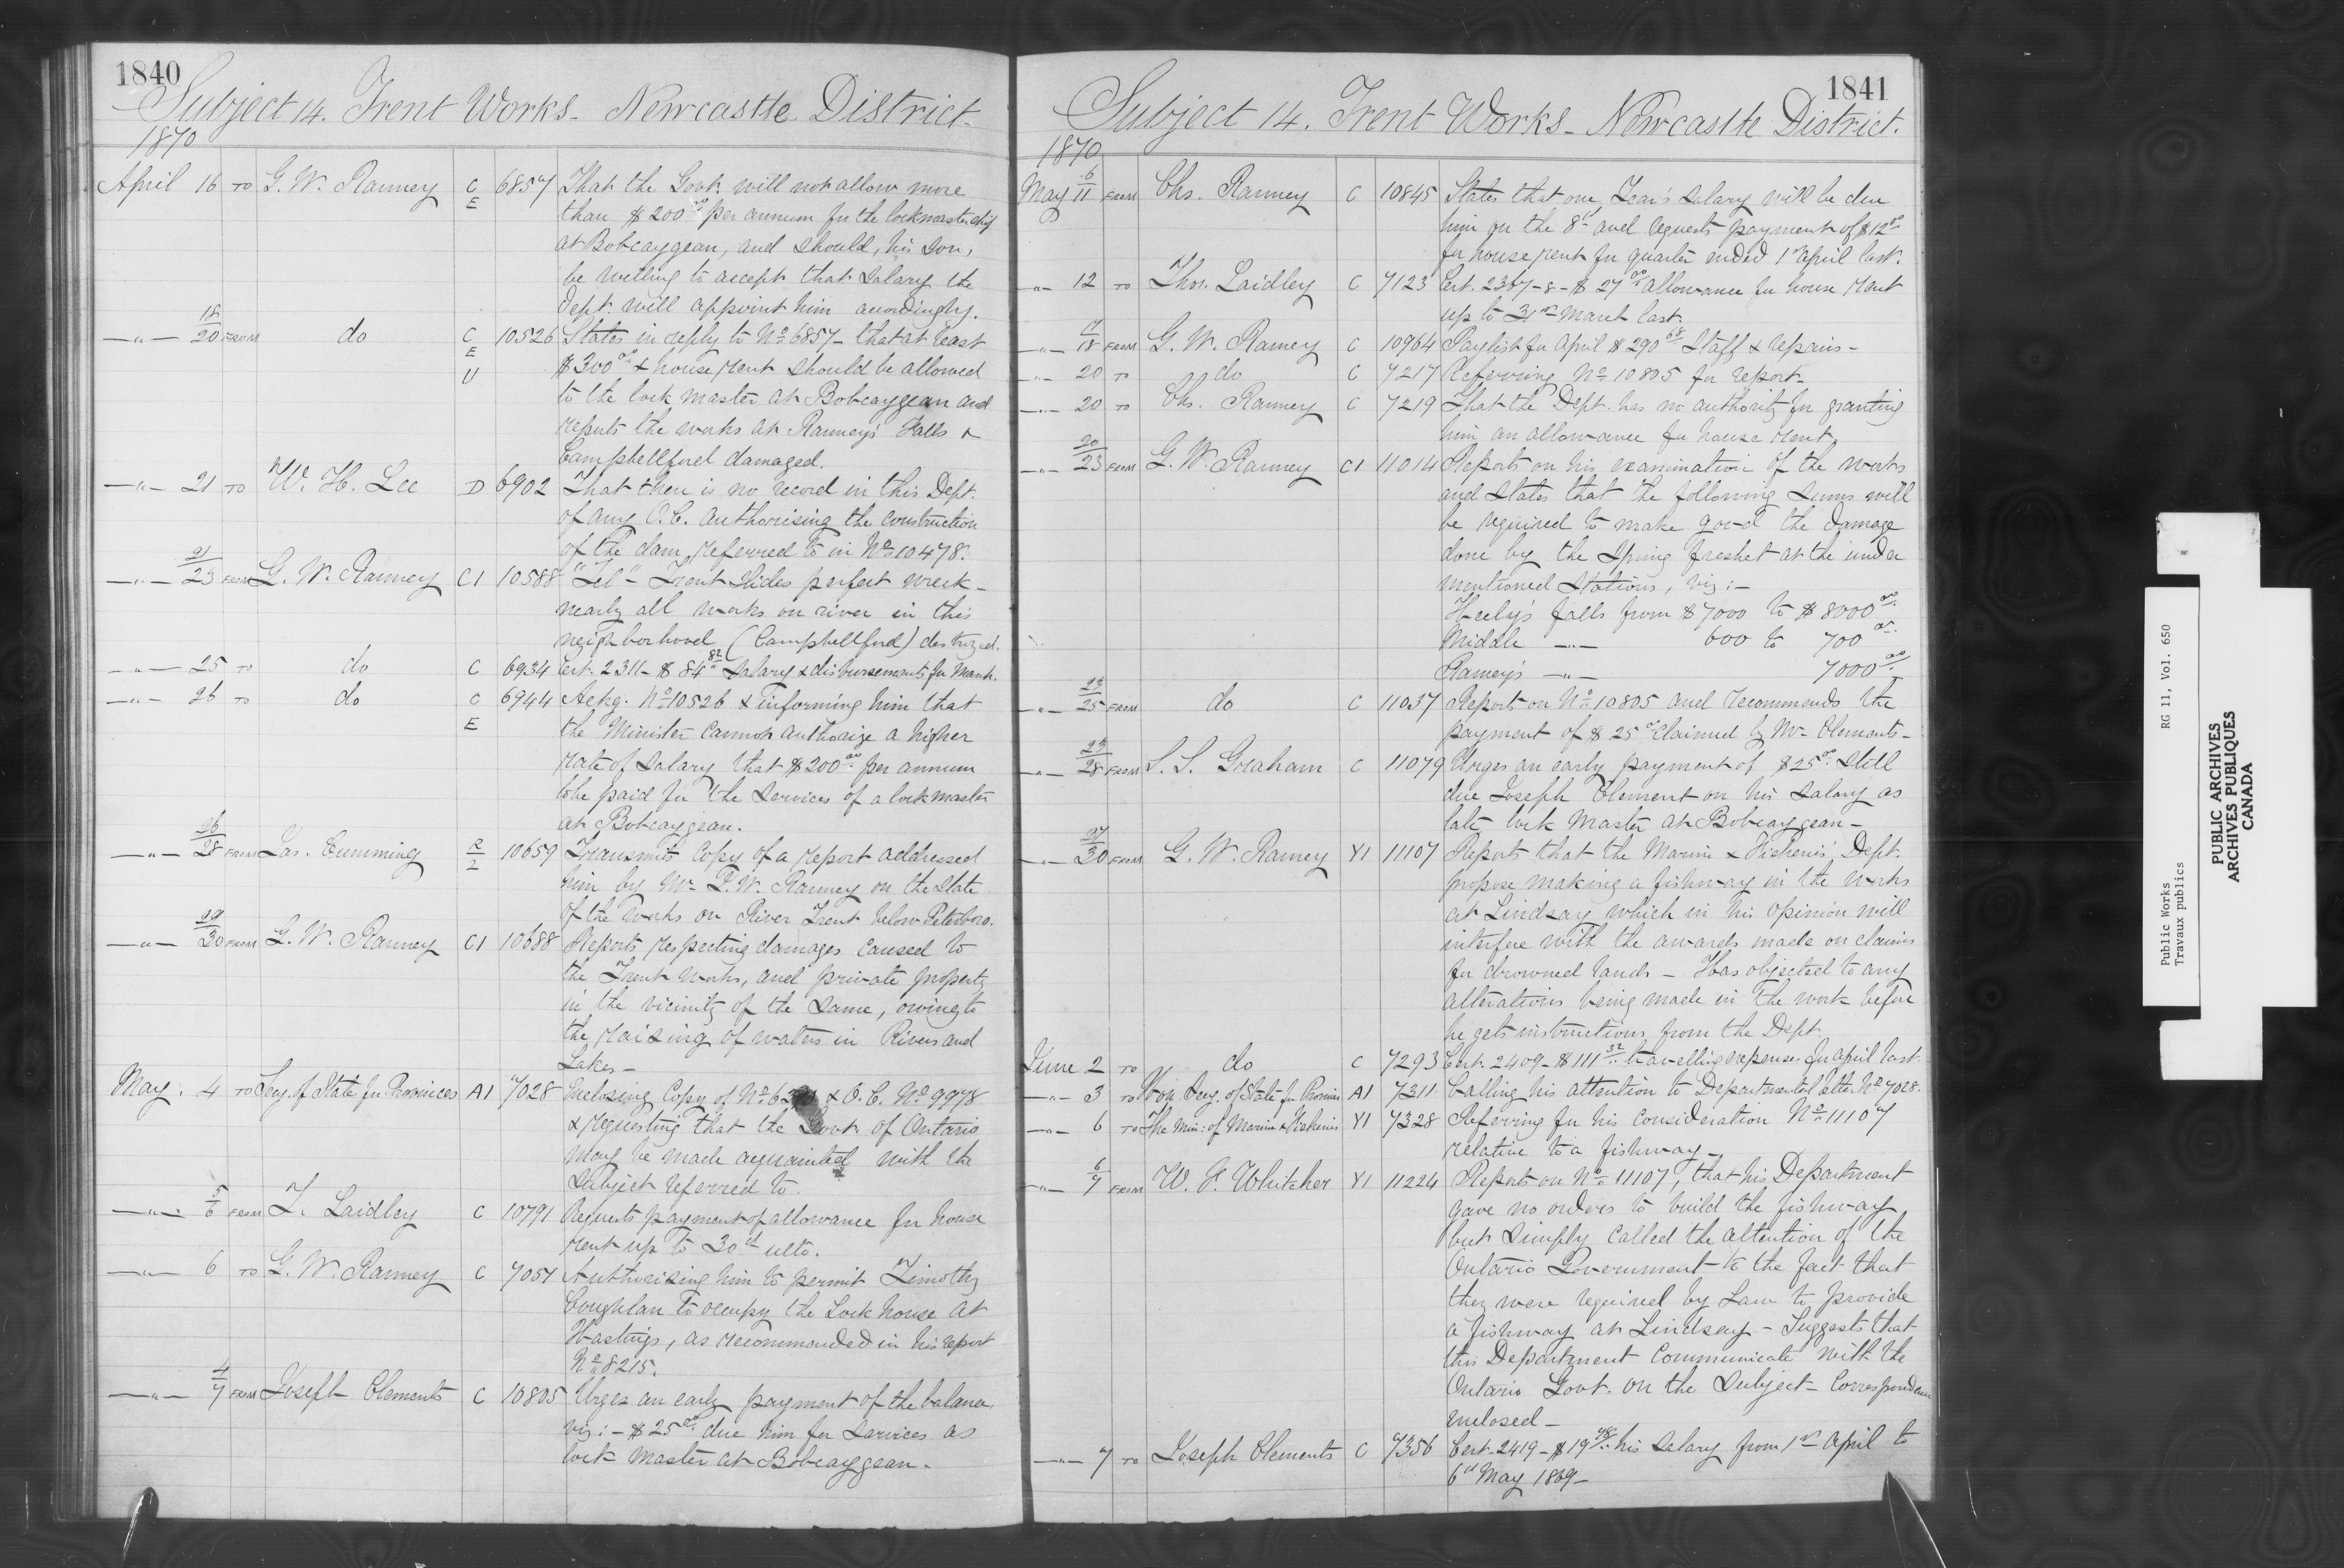 1840
Subject 14. Trent Works - Newcastle District
1870
April 16 TO G. W. Ranney C E 6857 That the Govt. will not allow more
than $200 00 per annum for the lockmastership
at Bobcaygean, and should, his Son,
be willing to accept that Salary the
Dept. will appoint him accordingly.
-"- 18/20 FROM do C E U 10526 States in reply to No. 6857 - that at least
$300 00 & house rent should be allowed
to the lock master at Bobcaygean and
reports the works at Ranney's Falls &
Campbellford damaged.
-"- 21 TO W. H. Lee D 6902 That there is no record in this Dept.
of any O.C. authorising the construction
of the dam, referred to in No. 10478.
-"- 21/23 FROM G. W. Ranney C1 10588 "Tel" - Trent Slides perfect wreck -
nearly all works on river in this
neighborhood (Campbellford) destroyed.
-"- 25 TO do C 6934 Cert. 2311 - $84 82 Salary & disbursements for March.
-"- 26 TO do C E 6944 Ackg. No. 10526 & informing him that
the Minister cannot authorize a higher
rate of Salary that $200 00 per annum
to be paid for the services of a lockmaster
at Bobcaygean.
-"- 26/28 FROM Jas. Cumming R/2 10659 Transmits Copy of a report addressed
him by Mr. G. W. Ranney on the state
of the works on River Trent below Peterboro.
-"- 29/30 FROM G. W. Ranney C1 10688 Reports respecting damages caused to
the Trent works, and private property
in the vicinity of the same, owing to
the raising of waters in Rivers and
Lakes -
May. 4 TO Secy. of State for Provinces A1 7028 Enclosing Copy of No. & O.C. No. 9978
& requesting that the Govt. of Ontario
may be made acquainted with the
Subject referred to.
-"- 5/6 FROM T. Laidley C 10791 Requests payment of allowance for house
rent up to 30th ulto.
-"- 6 TO G. W. Ranney C 7057 Authorising him to permit Timothy
Coughlan to occupy the Lock house at
Hastings, as recommended in his report
No. 8215.
-"- 4/7 FROM Joseph Clements C 10805 Urges an early payment of the balance
viz: - $25 00 due him for services as
lock master at Bobcaygean.
1841
Subject 14. Trent Works - Newcastle District.
1870
May 6/11 FROM Chs. Ranney C 10845 States that one Year's Salary will be due
him on the 8th and requests payment of $12 00
for house rent for quarter ended 1st April last.
-"- 12 TO Thos. Laidley C 7123 Cert. 2367-8 - $27 00 allowance for house rent
up to 31st March last.
-"- 17/18 FROM G. W. Ranney C 10964 Paylist for April $290 68 Staff & repairs -
-"- 20 TO do C 7217 Referring No. 10805 for report -
-"- 20 TO Chs. Ranney C 7219 That the Dept. has no authority for granting
him an allowance for house rent.
-"- 20/23 FROM G. W. Ranney C1 11014 Reports on his examination of the works
and states that the following sums will
be required to make good the damage
done by the Spring freshet at the under
mentioned Stations, viz: -
Heely's falls from $7000 to $8000 00
Middle -"- 600 to 700 00
Ranney's -"- 7000 00
-"- 23/25 FROM do C 11037 Reports on No. 10805 and recommends the
payment of $25 00 claimed by Mr. Clements -
-"- 25/28 FROM S. S. Graham C 11079 Urges an early payment of $25 00 still
due Joseph Clement on his Salary as
late lock master at Bobcaygean -
-"- 27/30 FROM G. W. Ranney Y1 11107 Reports that the Marine & Fisheries' Dept.
propose making a fishway in the works
at Lindsay which in his opinion will
interfere with the awards made on claims
for drowned lands - Has objected to any
alterations being made in the work before
he gets instructions from the Dept.
June 2 TO do C 7293 Cert. 2409 - $111 32 travelling expenses for April last.
-"- 3 TO Hon. Secy. of State for Provinces A1 7311 Calling his attention to Departmental letter No. 7028.
-"- 6 TO The Min: of Marine & Fisheries Y1 7328 Referring for his consideration No. 11107
relative to a fishway -
-"- 6/7 FROM W. F. Whitcher Y1 11224 Reports on No. 11107, that his Department
gave no orders to build the fishway
but simply called the attention of the
Ontario Government to the fact that
they were required by Law to provide
a fishway at Lindsay - Suggests that
this Department communicate with the
Ontario Govt. on the Subject - Correspondence
enclosed -
-"- 7 TO Joseph Clements C 7356 Cert. 2419 - $19 78 his Salary from 1st April to
6th May 1869 -
Public Works RG 11, Vol. 650
Travaux publics
PUBLIC ARCHIVES
ARCHIVES PUBLIQUES
CANADA